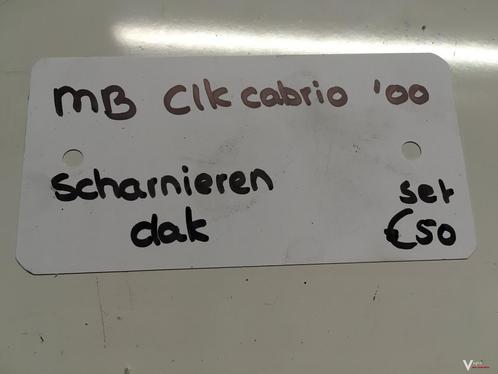 MB Clk cabrio '00
scharnieren set
dak €50